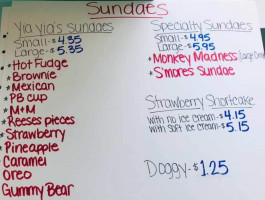 Sundaes
Yia Yia's Sundaes
Small - $4.35
Large - $5.35
*Hot Fudge
*Brownie
*Mexican
*PB cup
*M+M
*Reeses pieces
*Strawberry
*Pineapple
Caramel
Oreo
Gummy Bear
Specialty Sundaes
Small - $4.95
Large - $5.95
*Monkey Madness
*S'mores Sundae
Strawberry Shortcake
with no ice cream - $4.15
with soft ice cream - $5.15
Doggy - $1.25